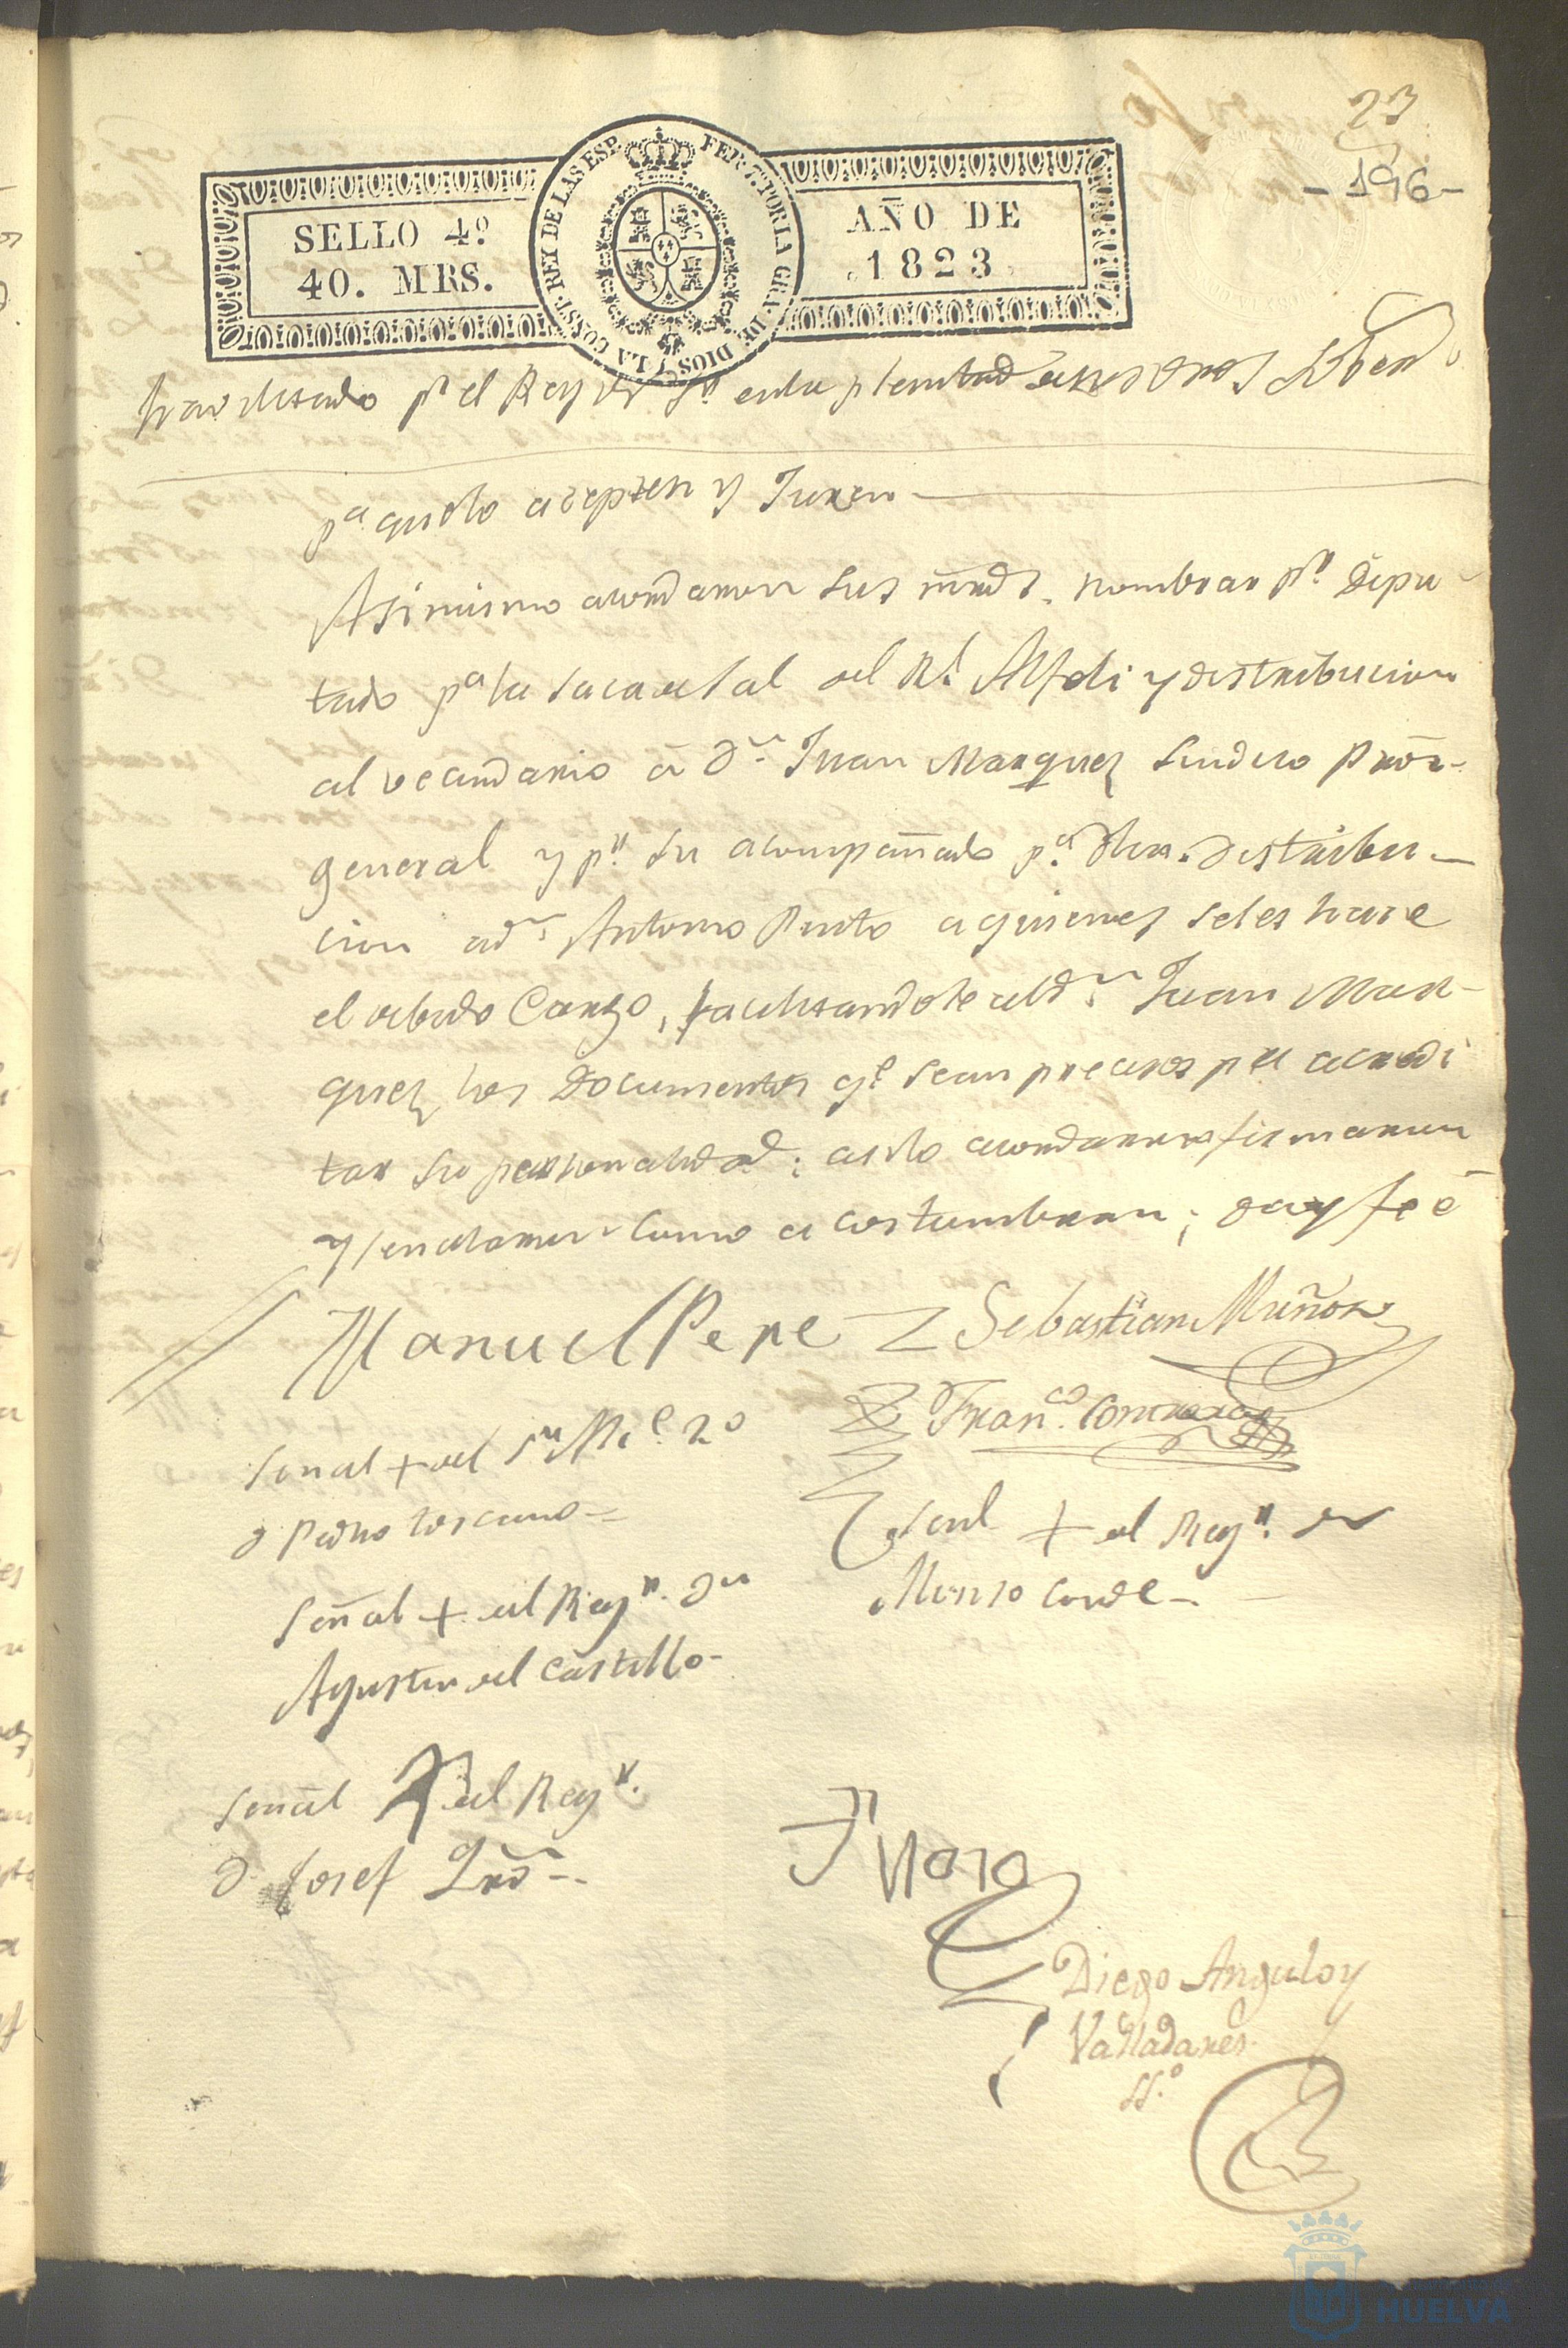 23
-196-
SELLO 4º
40. MRS.
FER. 7. POR LA GRA. DE DIOS Y LA CONST. REY DE LAS ESP.
AÑO DE
1823
havilitado pr. el Rey ntro Sr. en la plenitud de sus dros
pa. qe. lo acepten y Juren
Asimismo acordaron sus mrds. nombrar pr. Dipu
tado pa. la saca de sal del Rl. Alfoli y distribucion
al vecindario à Dn. Juan Marquez Sindico Prôr.
general y pr. su acompañado pa. dha. distribu-
cion a dn. Antonio Pinto a quienes se les hace
el debido Cargo, facilitandole al dn. Juan Mar-
quez los Documentos qe. sean precisos pa. acredi
tar su personalidad; asi lo acordaron firmaron
y señalaron como acostumbran; doy feé
Manuel Pepe
Sebastian Muñoz
señal + del Sr. Alce. 2º
Franco. Contreras
d Pedro toscano=
señl + del Regr. dn
Alonso conde-
señal + del Regr. Dn
Agustin del Castillo-
señal + del Regr.
d. Josef
Diego Angulo y
Valladares
SSº.
HUELVA